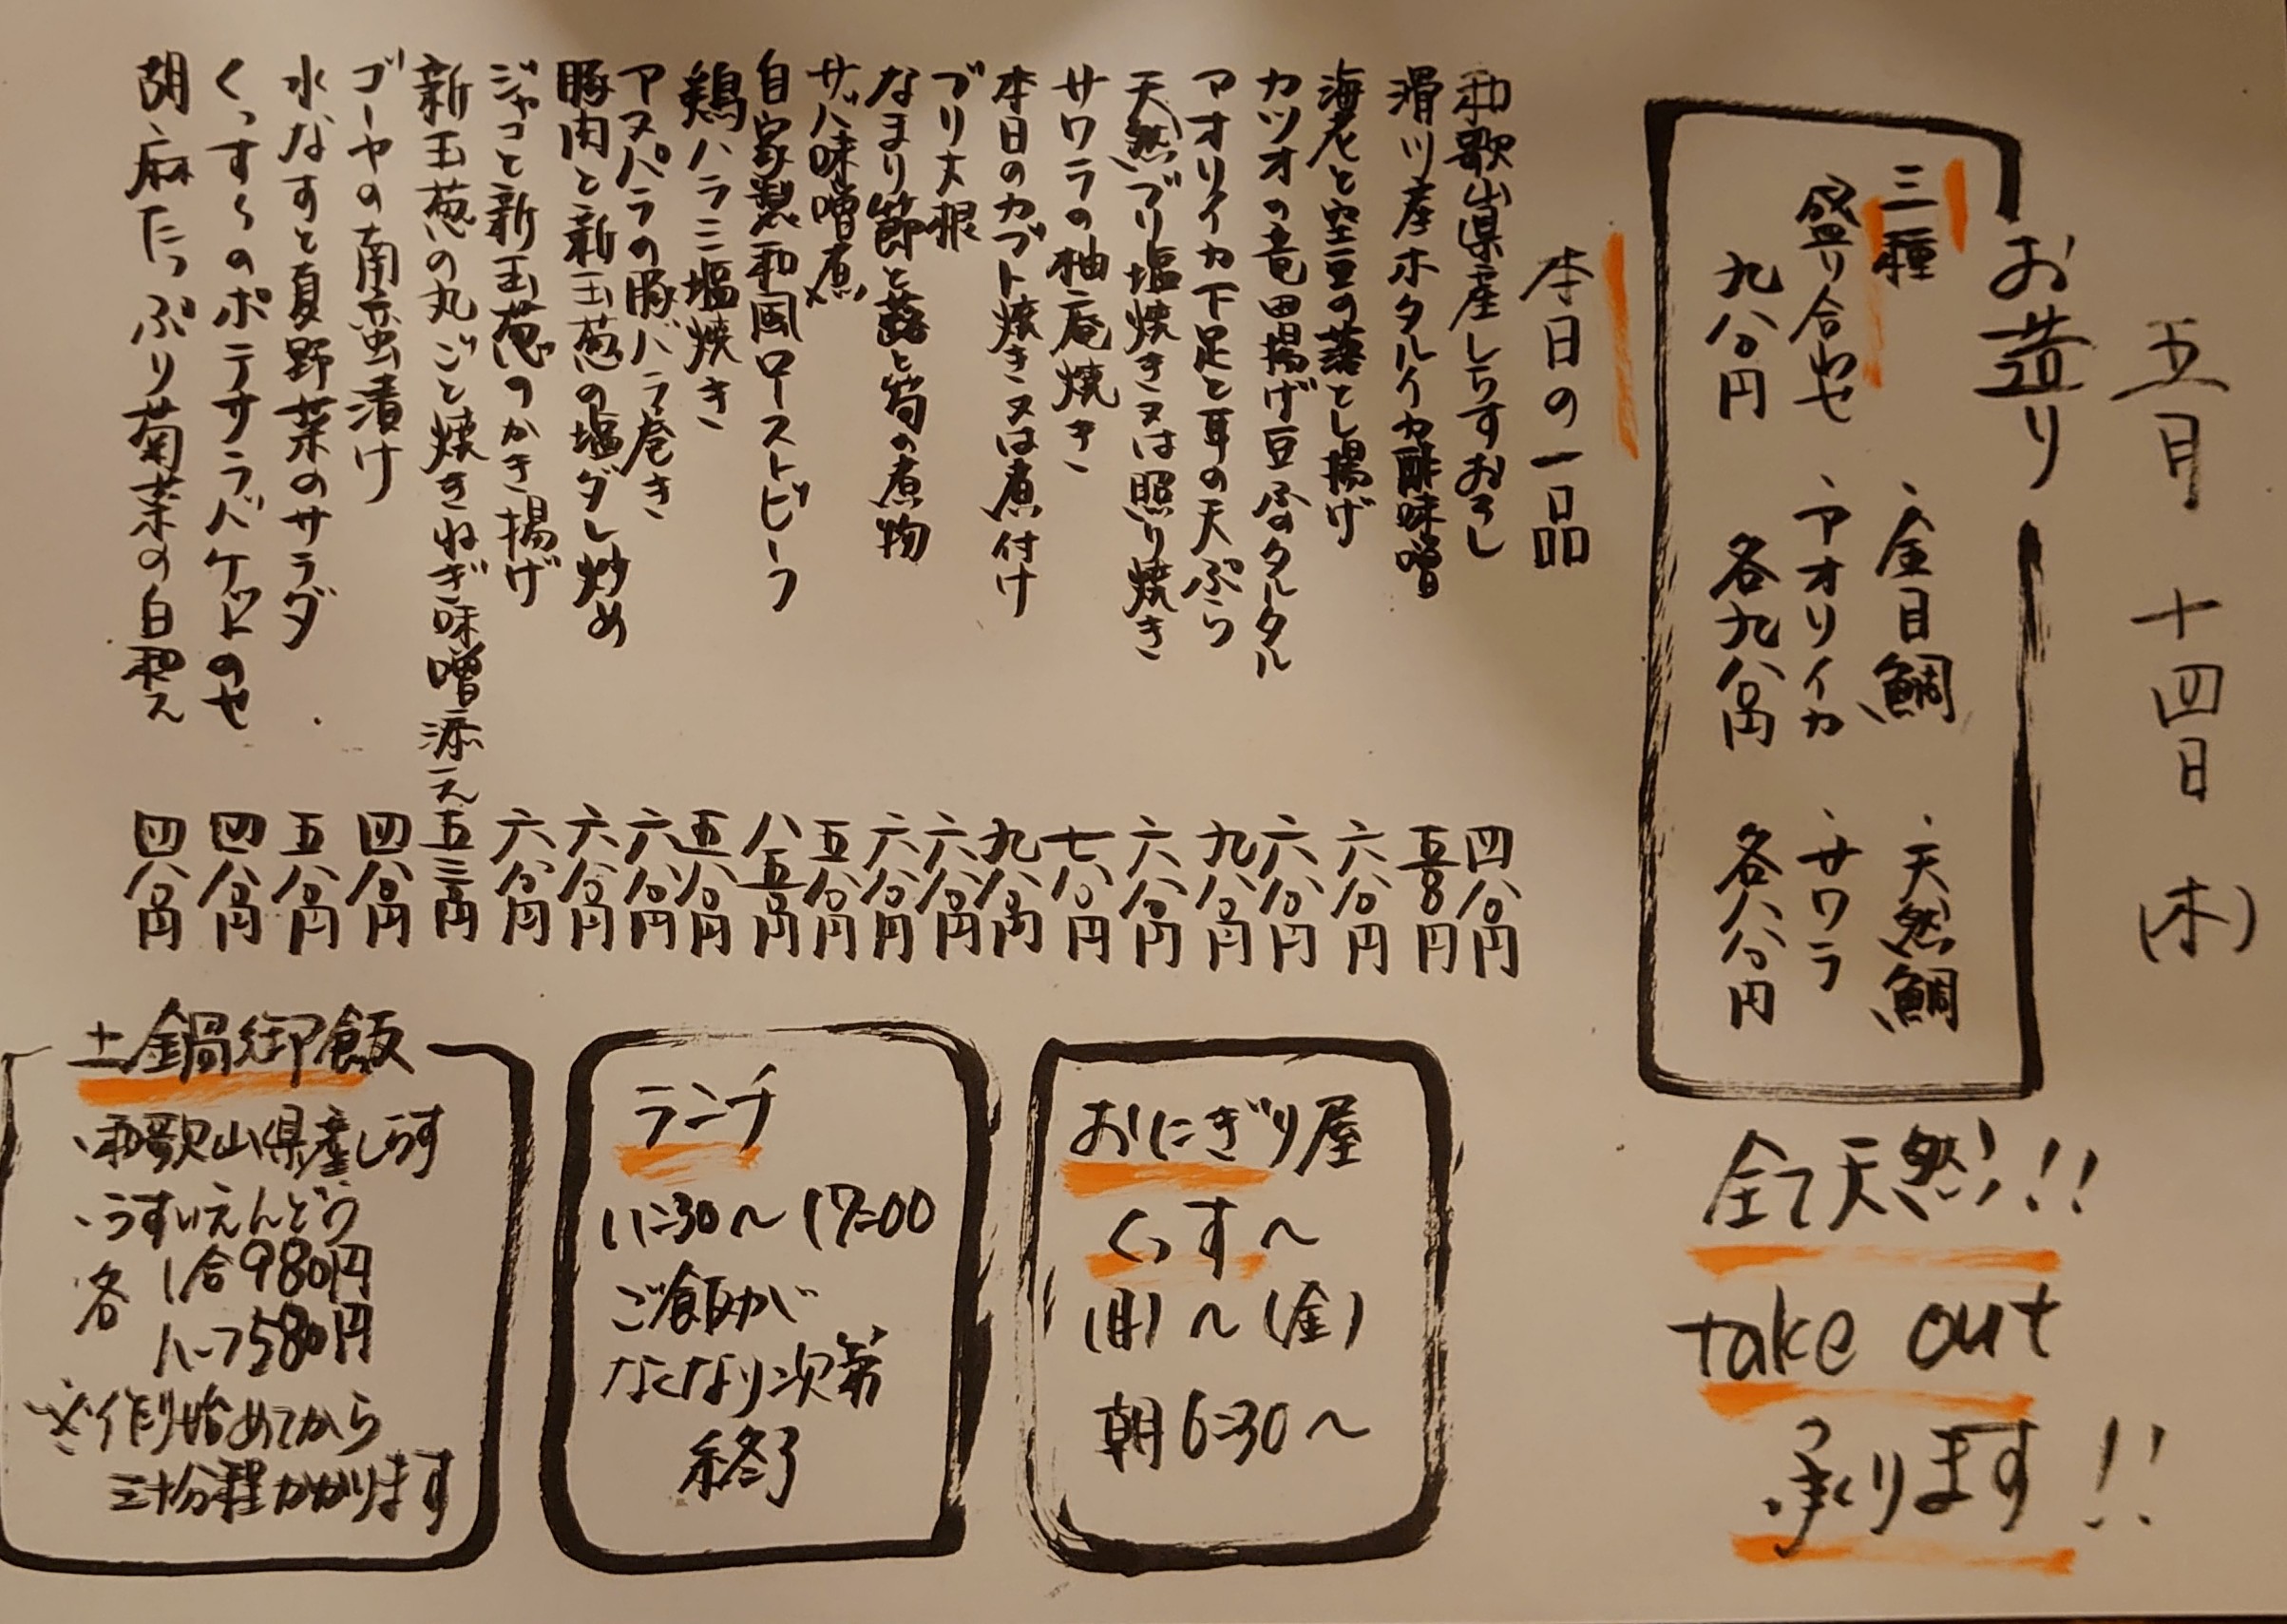 五月十四日(木)
お造り
三種
盛り合わせ
九八〇円
・金目鯛
・アオリイカ
各九八〇円
・天然鯛
・サワラ
各八八〇円
全て天然!!
take out
承ります!!
本日の一品
和歌山県産しらすおろし 四八〇円
滑川産ホタルイカ酢味噌 五八〇円
海老と空豆の落とし揚げ 六八〇円
カツオの竜田揚げ豆腐のタルタル 六八〇円
アオリイカ下足と耳の天ぷら 九八〇円
天然ブリ塩焼き又は照り焼き 六八〇円
サワラの柚庵焼き 七八〇円
本日のカブト焼き又は煮付け 九八〇円
ブリ大根 六八〇円
なまり節と蕗と筍の煮物 六八〇円
サバ味噌煮 五八〇円
自家製和風ローストビーフ 八五〇円
鶏ハラミ塩焼き 五八〇円
アスパラの豚バラ巻き 六八〇円
豚肉と新玉葱の塩ダレ炒め 六八〇円
ジャコと新玉葱のかき揚げ 六八〇円
新玉葱の丸ごと焼きねぎ味噌添え 五三〇円
ゴーヤの南蛮漬け 四八〇円
水なすと夏野菜のサラダ 五八〇円
くっす〜のポテサラバケットのせ 四八〇円
胡麻たっぷり菊菜の白和え 四八〇円
おにぎり屋
くっす〜
(月)〜(金)
朝6:30〜
ランチ
11:30〜17:00
ご飯が
なくなり次第
終了
土鍋御飯
・和歌山県産しらす
・うすいえんどう
各 1合980円
ハーフ580円
※作り始めてから
三十分程かかります